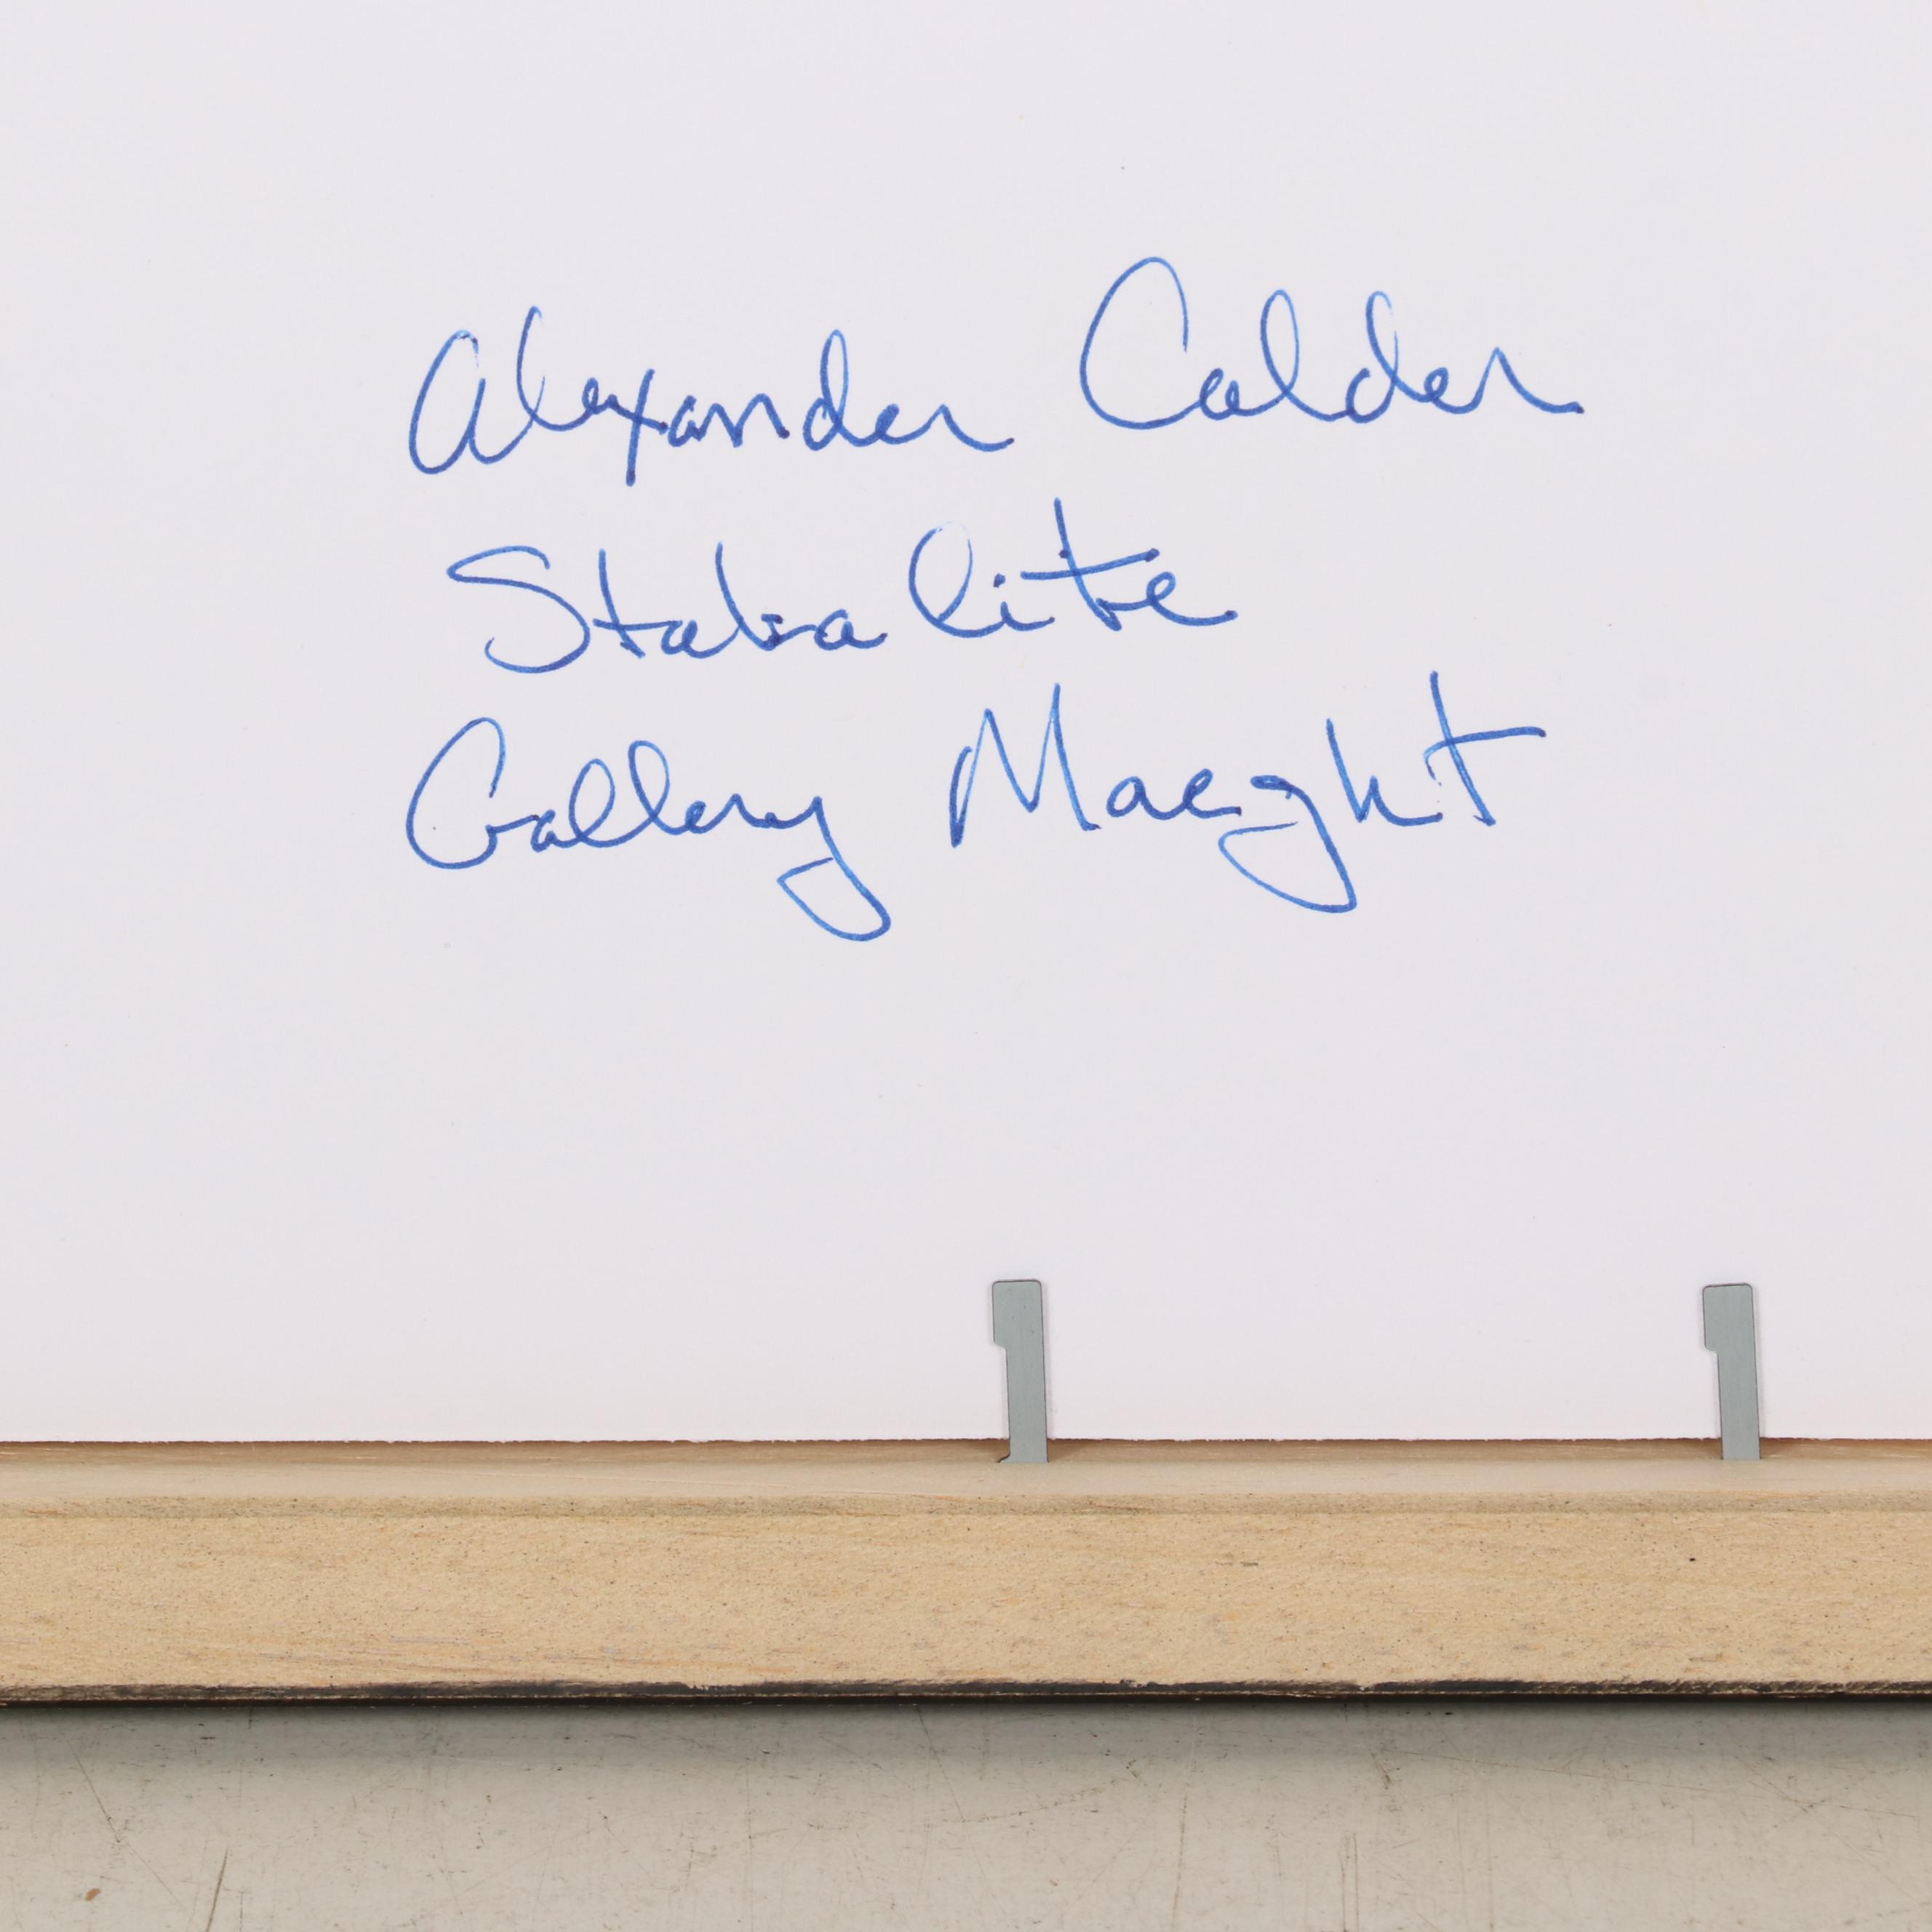 Alexander Calder
Stabalite
Gallery Maeght